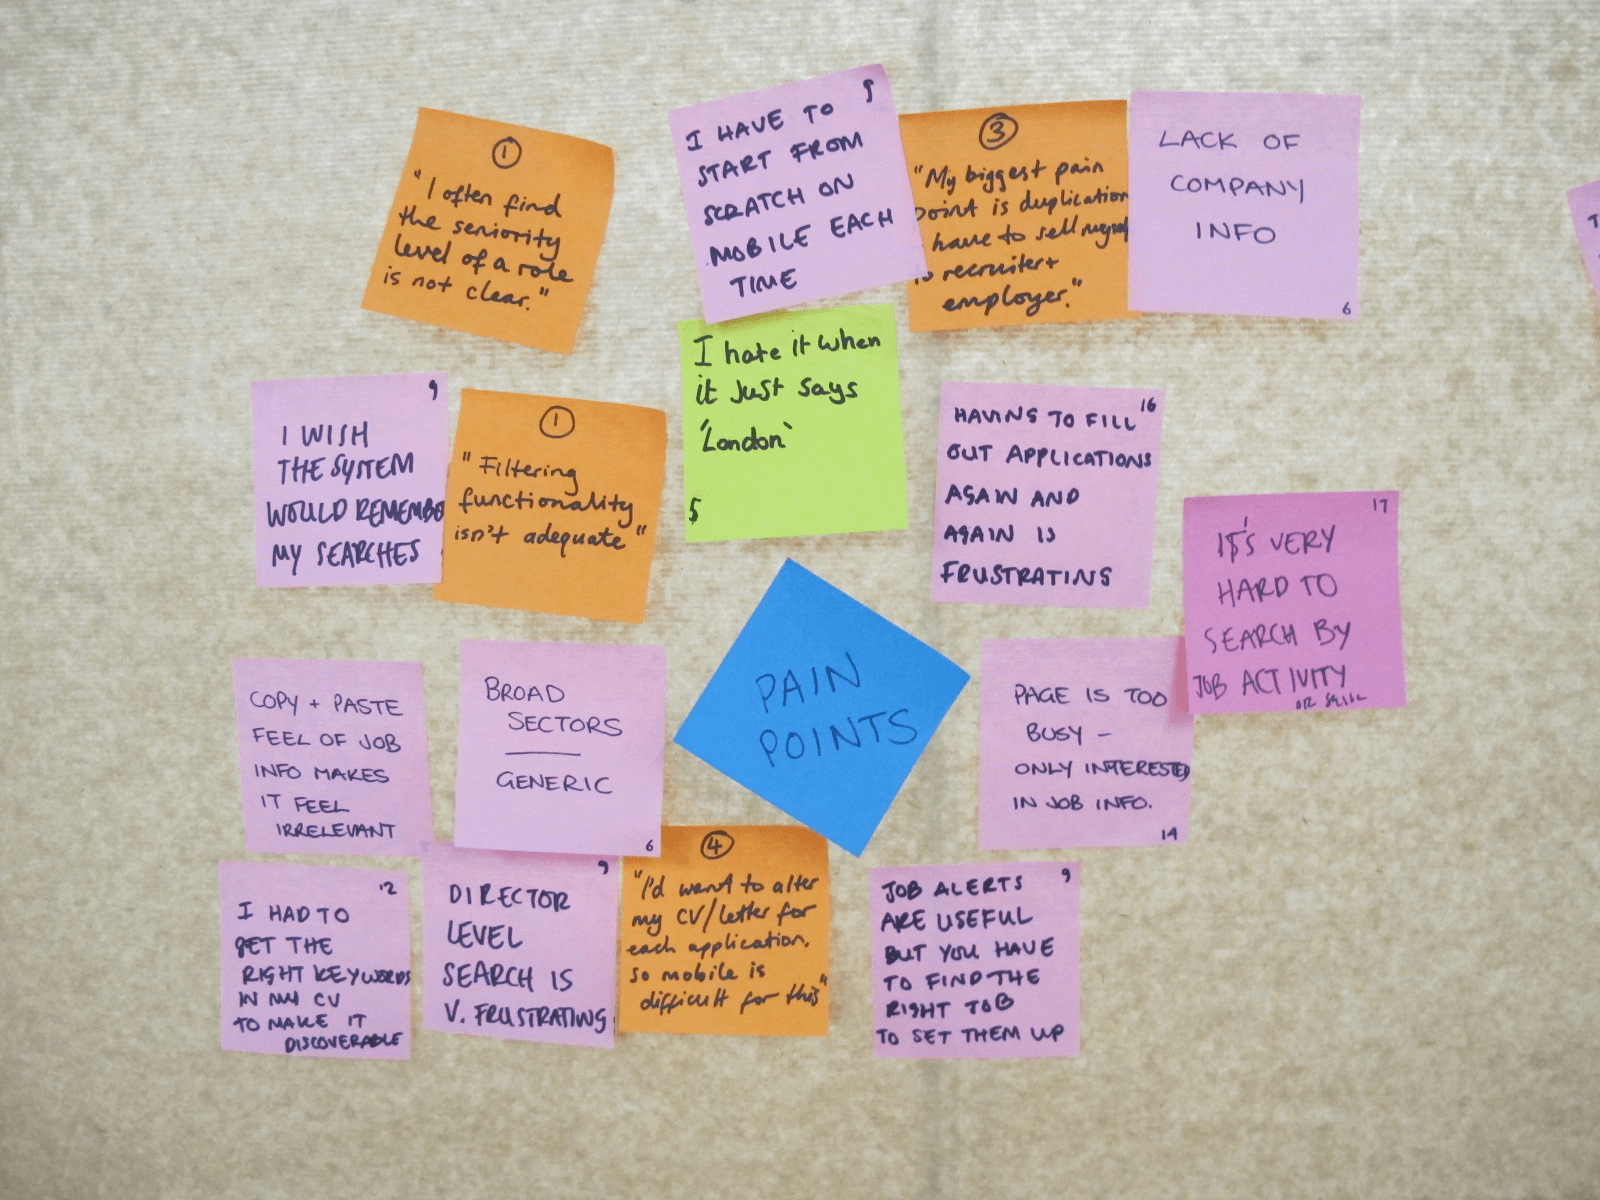 1
"I often find
the seniority
level of a role
is not clear."
9
I HAVE TO
START FROM
SCRATCH ON
MOBILE EACH
TIME
3
"My biggest pain
point is duplication
have to sell myself
to recruiter +
employer."
LACK OF
COMPANY
INFO
6
9
I WISH
THE SYSTEM
WOULD REMEMBE
MY SEARCHES
1
"Filtering
functionality
isn't adequate"
I hate it when
it just says
'London'
5
16
HAVING TO FILL
OUT APPLICATIONS
AGAIN AND
AGAIN IS
FRUSTRATING
17
IT'S VERY
HARD TO
SEARCH BY
JOB ACTIVITY
OR SKILL
COPY + PASTE
FEEL OF JOB
INFO MAKES
IT FEEL
IRRELEVANT
BROAD
SECTORS
GENERIC
6
PAIN
POINTS
PAGE IS TOO
BUSY -
ONLY INTERESTED
IN JOB INFO.
14
12
I HAD TO
GET THE
RIGHT KEYWORDS
IN MY CV
TO MAKE IT
DISCOVERABLE
9
DIRECTOR
LEVEL
SEARCH IS
V. FRUSTRATING
4
"I'd want to alter
my CV/letter for
each application.
so mobile is
difficult for this"
9
JOB ALERTS
ARE USEFUL
BUT YOU HAVE
TO FIND THE
RIGHT JOB
TO SET THEM UP